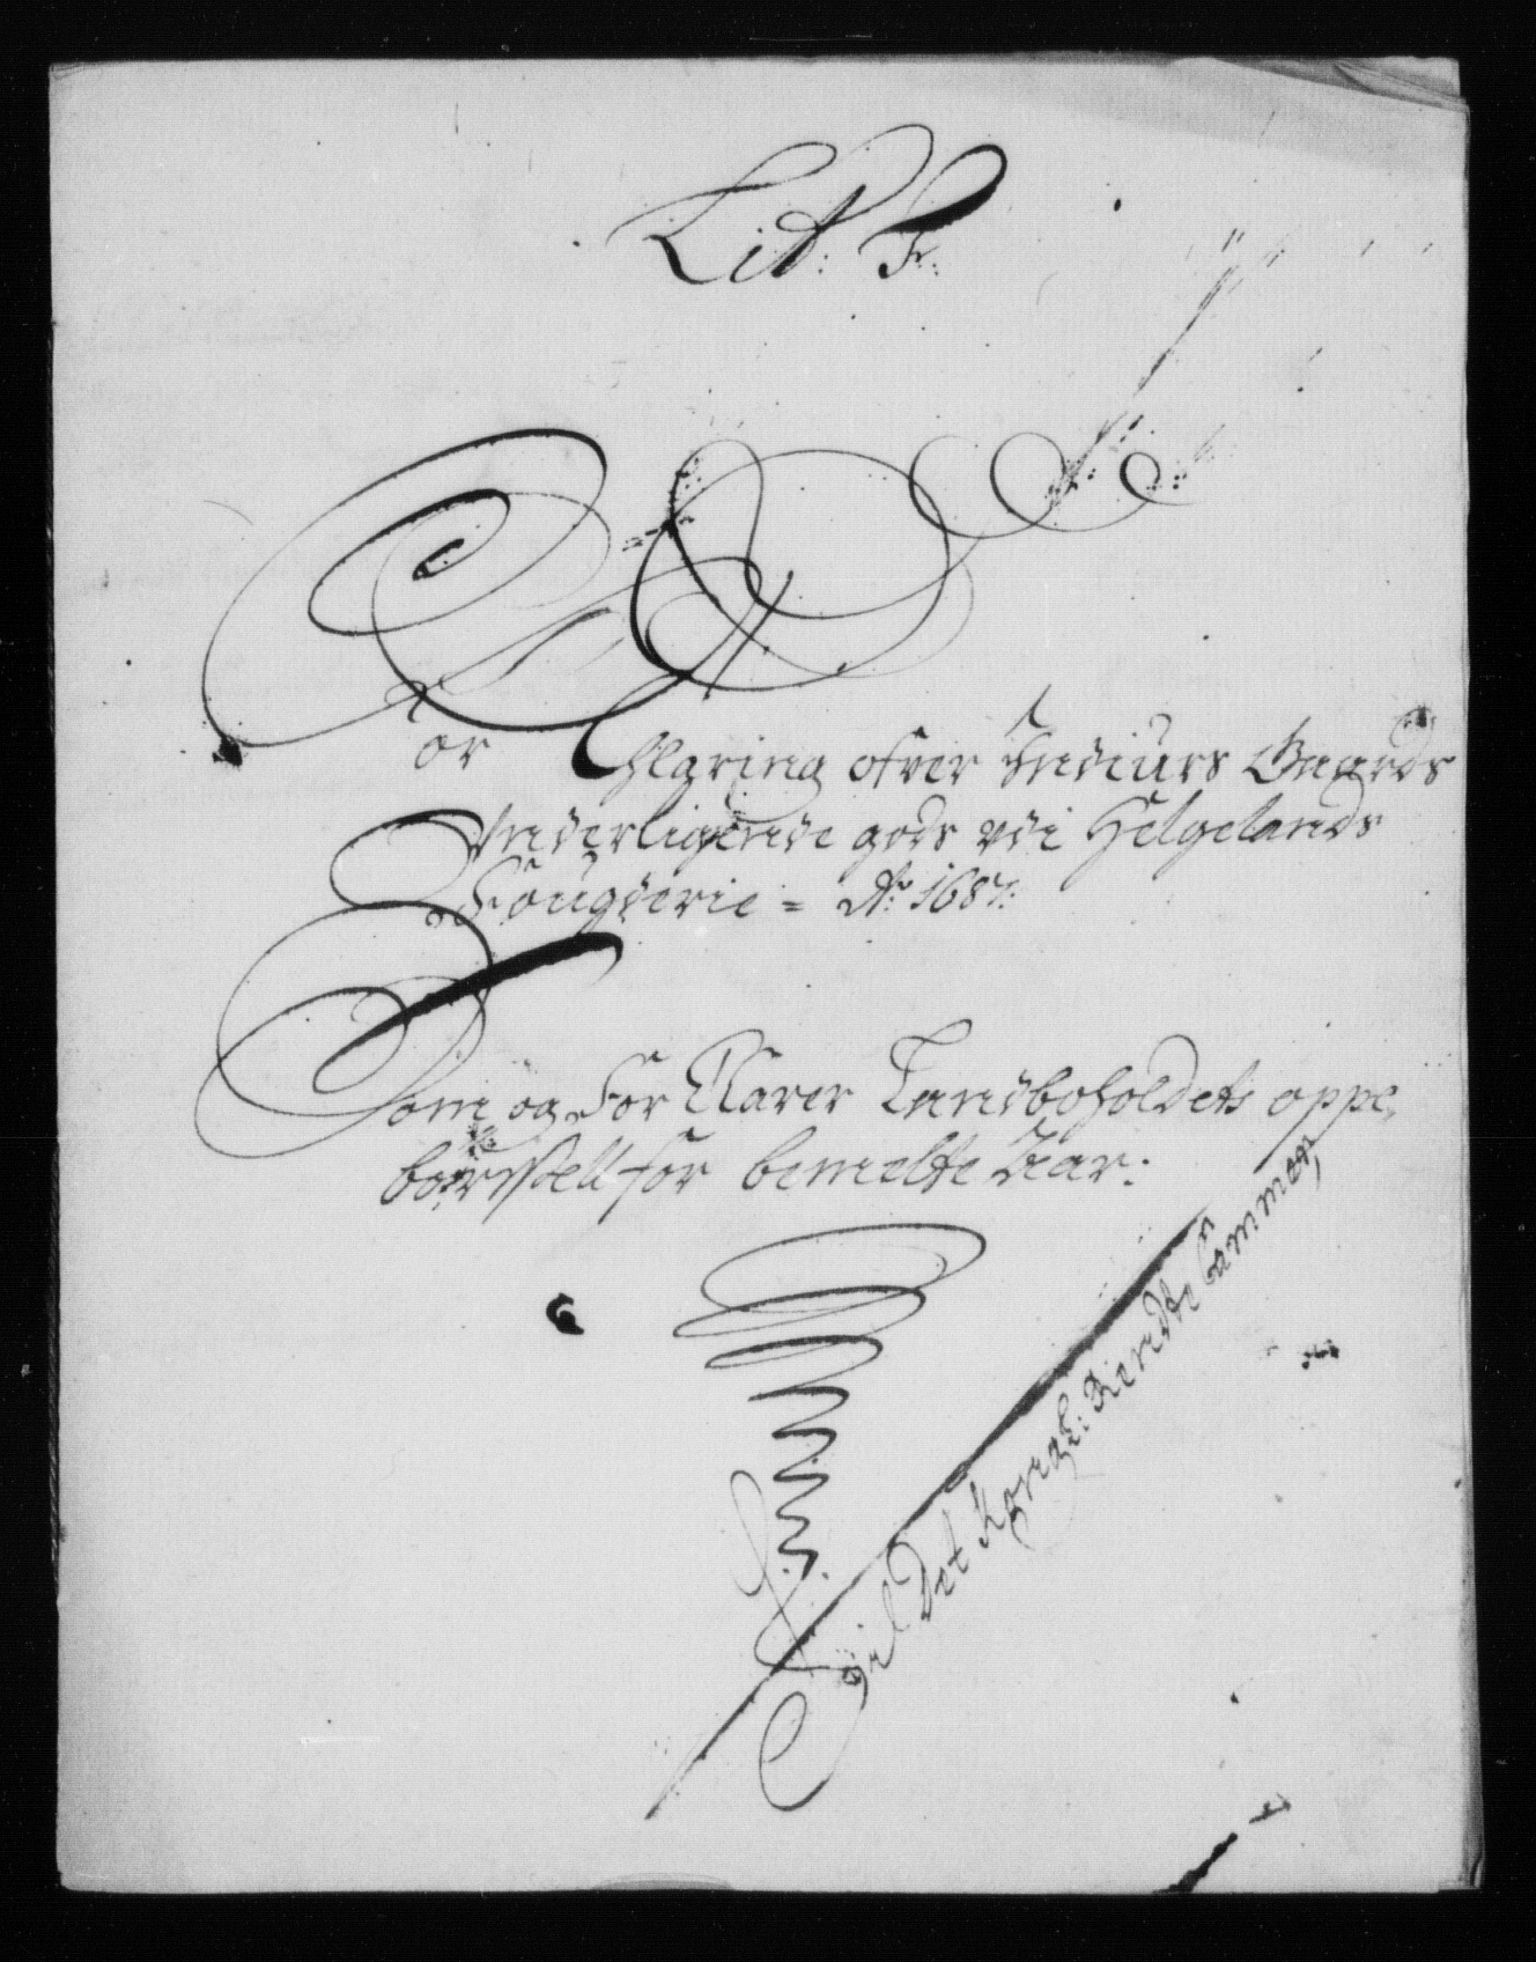 Lit: F:
For Klaring ofver Indiurs Gaards
Underligende gods udi Helgelands
Fougderie = Ao: 1687:
Som og For Klarer Landboholdets oppe,
børssell for bemelte Aar:
Til Det Kongl: Rendte Cammer